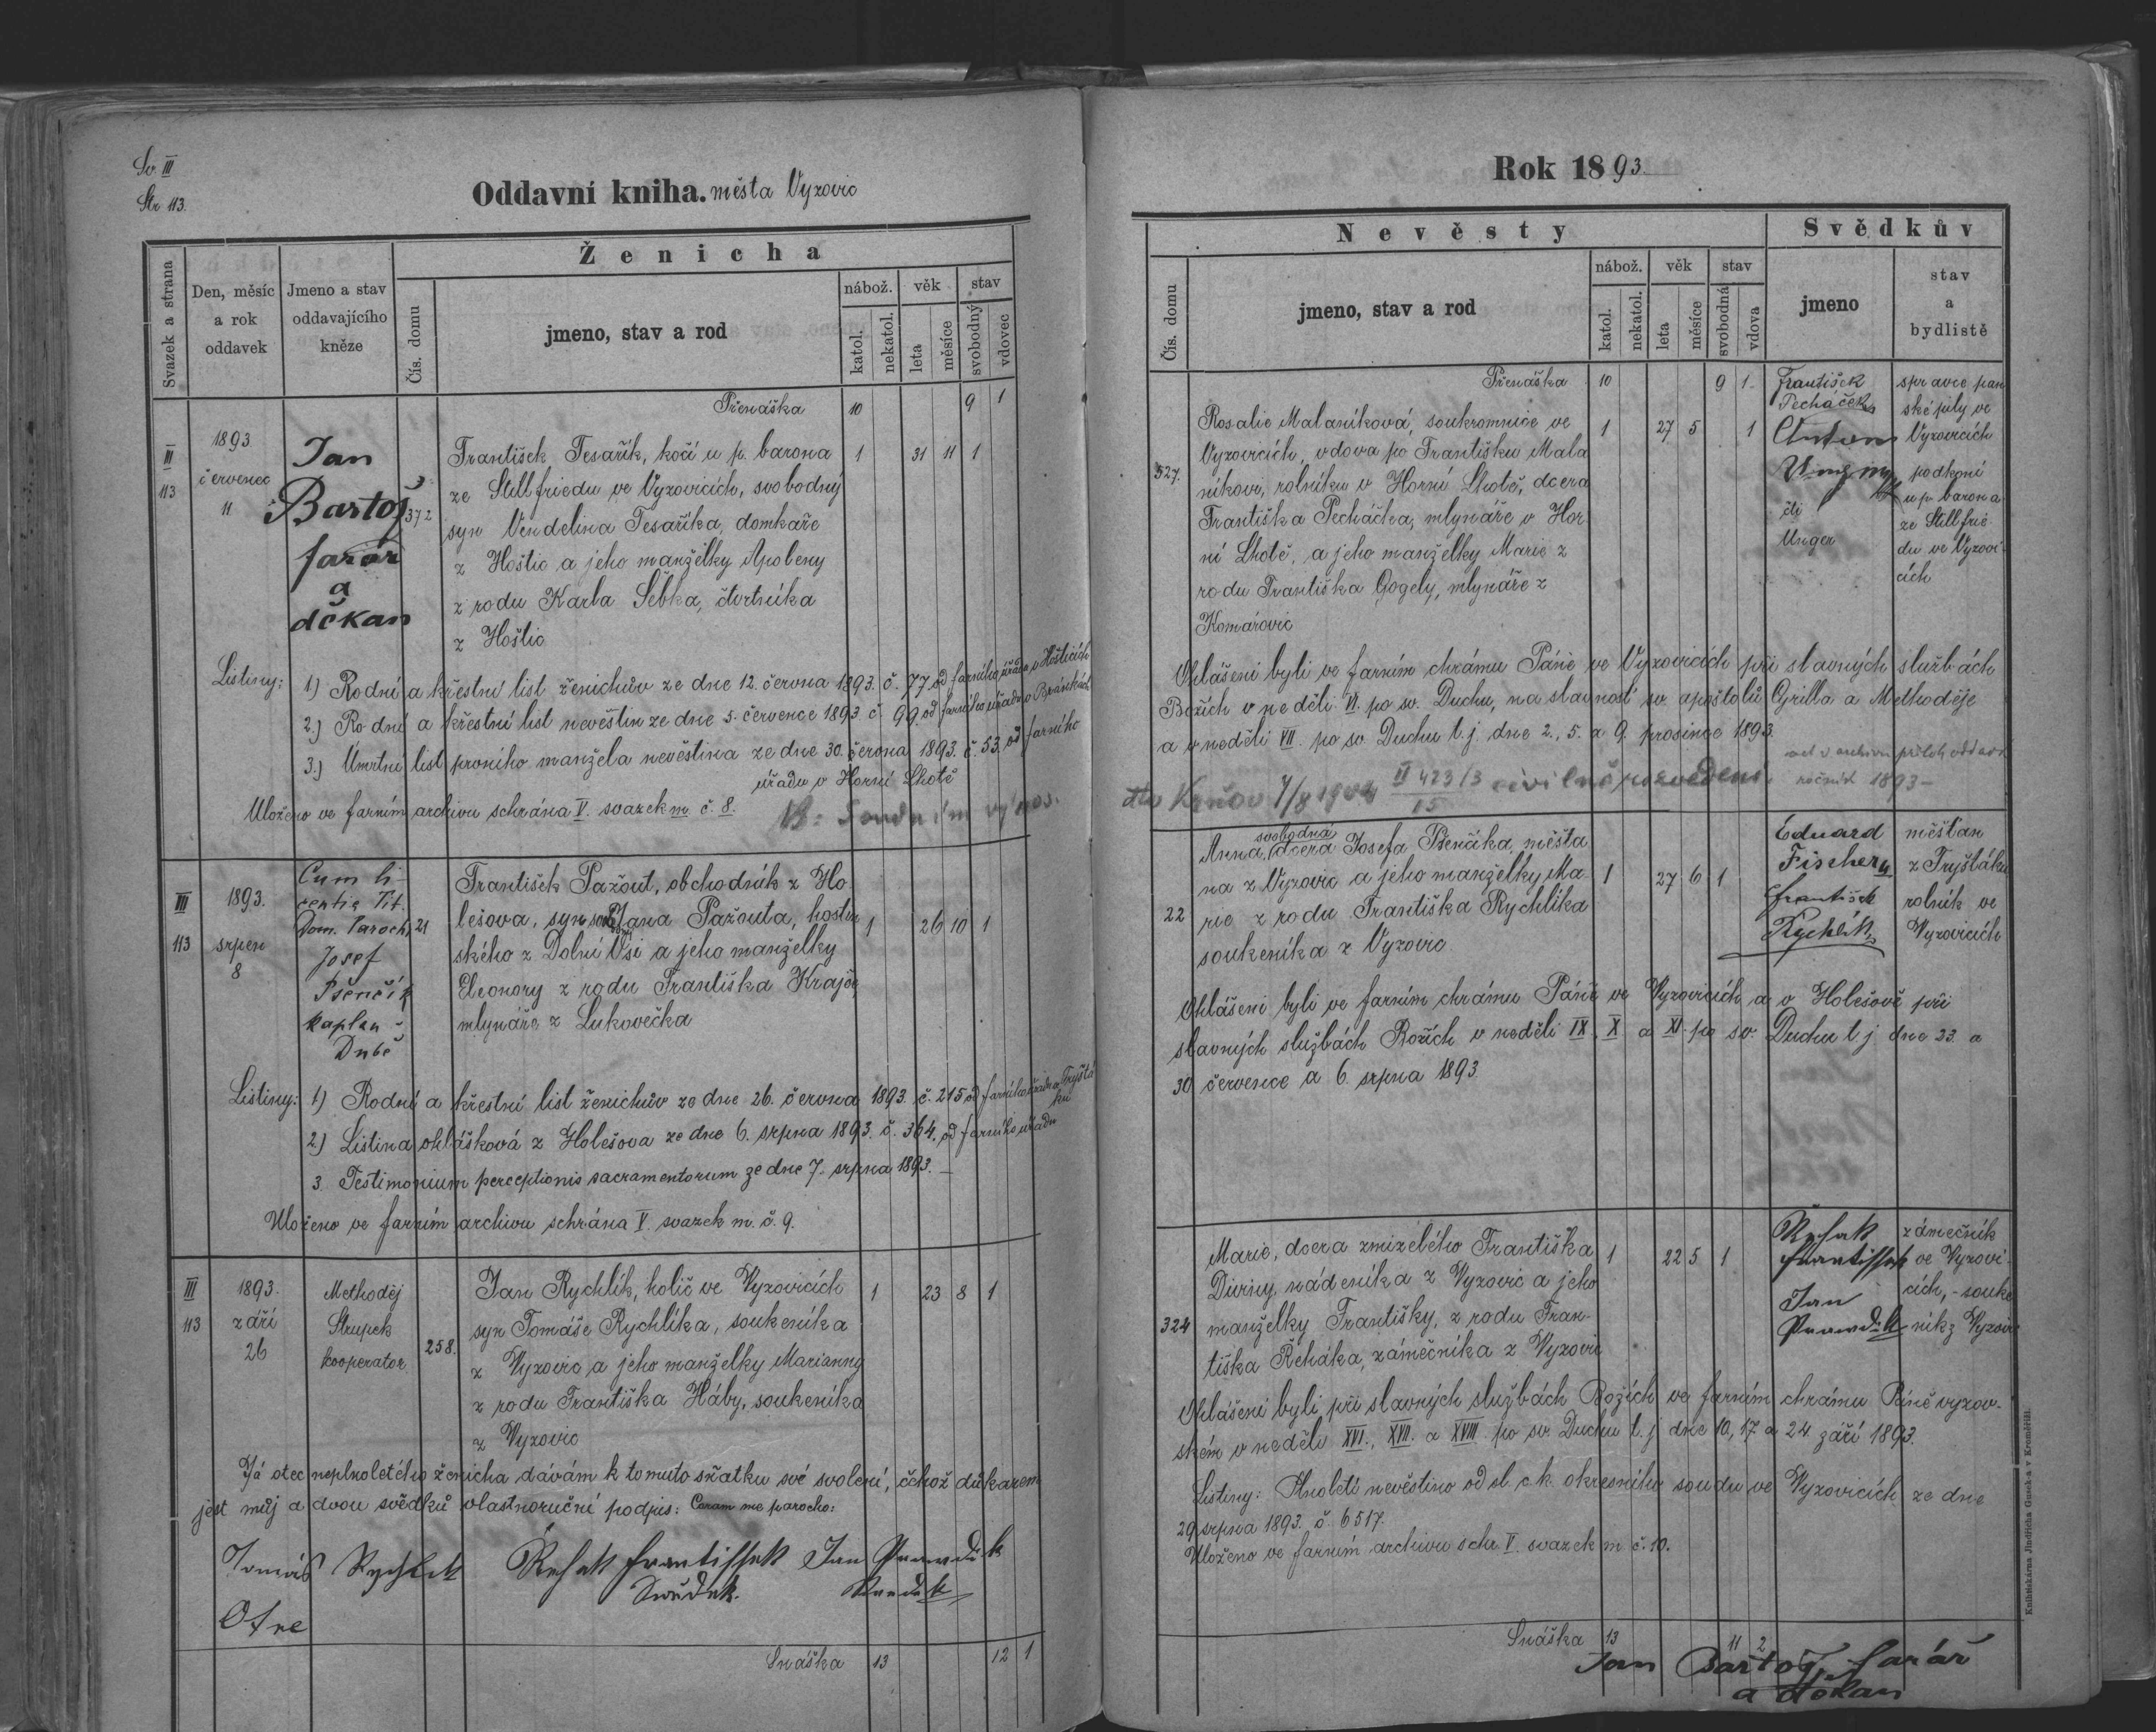 Sv. III
Str. 113.
Oddavní kniha. města Vyzovic
Svazek a strana
Den, měsíc a rok oddavek
Jmeno a stav oddavajícího kněze
Ženicha
Čís. domu
jmeno, stav a rod
nábož.
věk
stav
katol.
nekatol.
leta
měsíce
svobodný
vdovec
Přenáška 10 9 1
III
113
1893
červenec
11
Jan
Bartoš
farář
a
děkan
372
František Tesařík, kočí u p. barona 1 31 11 1
ze Stillfriedu ve Vyzovicích, svobodný
syn Vendelina Tesaříka, domkaře
z Hoštic a jeho manželky Apoleny
z rodu Karla Sebka, čtvrtníka
z Hoštic
Listiny: 1) Rodní a křestní list ženichův ze dne 12. června 1893. č. 77 od farního úřadu v Hošticích
2.) Rodní a křestní list nevěstin ze dne 5. července 1893 č. 99. od farního úřadu v
3.) Umrtní list prvního manžela nevěstina ze dne 30. června 1893. č. 53. od farního
úřadu v Horní Lhotě
Uloženo ve farním archivu schrána V. svazek m. č. 8.
NB: Soudním výnos.
III
113
1893.
srpen
8
Cum li-
centia Tit.
Dom. Parochi
Josef
Pšenčík
kaplan v
Dubě
21
František Pažout, obchodník z Ho-
lešova, syn Jana Pažouta, hostin 1 26 10 1
ského z Dolní Vsi a jeho manželky
Eleonory z rodu Františka Krajče,
mlynáře z Lukovečka
Listiny: 1) Rodní a křestní list ženichův ze dne 26. června 1893. č. 215 od farního úřadu v Tryštá
ku
2) Listina ohlášková z Holešova ze dne 6. srpna 1893. č. 364. od farního úřadu
3. Testimonium perceptionis sacramentorum ze dne 7. srpna 1893. —
Uloženo ve farním archivu schrána V. svazek m. č. 9.
III
113
1893.
září
26
Methoděj
Strupek
kooperator
258.
Jan Rychlík, holič ve Vyzovicích 1 23 8 1
syn Tomáše Rychlíka, soukeníka
z Vyzovic a jeho manželky Marianny
z rodu Františka Háby, soukeníka
z Vyzovic
Já otec neplnoletého ženicha dávám k tomuto sňatku své svolení, čehož důkazem
jest můj a dvou svědků vlastnoruční podpis: Coram me parocho:
Tomáš Rychlik
Otec
Rehak Frantissek
Swědek.
Jan
Snáška 13 12 1
Rok 1893.
Nevěsty
Svědkův
Čís. domu
jmeno, stav a rod
nábož.
věk
stav
katol.
nekatol.
leta
měsíce
svobodná
vdova
jmeno
stav a bydliště
Přenáška 10 9 1
527.
Rosalie Malaníková, soukromnice ve 1 27 5 1
Vyzovicích, vdova po Františku Mala
níkovi, rolníku v Horní Lhotě, dcera
Františka Pecháčka, mlynáře v Hor-
ní Lhotě, a jeho manželky Marie z
rodu Františka Gogely, mlynáře z
Komárovic
František
Pecháček
správce pan
ské pily ve
Vyzovicích
Anton
čti
Unger
podkoní
u p. barona
ze Stillfrie-
du ve Vyzovi-
cích
Ohlášeni byli ve farním chrámu Páně ve Vyzovicích při slavných službách
Božích v neděli VI. po sv. Duchu, na slavnosť sv. apoštolů Cyrilla a Methoděje
a v neděli VII. po sv. Duchu t. j. dne 2., 5. a 9. prosince 1893.
1893 —
civilně rozvedeni
22
Anna, svobodná dcera Josefa Pšenčíka, měšťa
na z Vyzovic a jeho manželky Ma- 1 27 6 1
rie z rodu Františka Rychlíka
soukeníka z Vyzovic
Eduard
Fischer
měšťan
z Fryštáku
František
Rychlík
rolník ve
Vyzovicích
Ohlášeni byli ve farním chrámu Páně ve Vyzovicích a v Holešově při
slavných službách Božích v neděli IX. X a XI. po sv. Duchu t. j. dne 23. a
30 července a 6. srpna 1893
324
Marie, dcera zmizelého Františka 1 22 5 1
Diviny, nádeníka z Vyzovic a jeho
manželky Františky, z rodu Fran-
tiška Řeháka, zámečníka z Vyzovic
Řehak
Frantissek
zámečník
ve Vyzovi-
cích, - souke
ník z Vyzovic
Jan
Ohlášeni byli při slavných službách Božích ve farním chrámu Páně vyzov-
ském v neděli XVI., XVII. a XVIII. po sv. Duchu t. j. dne 10, 17 a 24. září 1893.
Listiny: Plnoletí nevěstino od sl. c. k. okresního soudu ve Vyzovicích ze dne
29 srpna 1893. č. 6517.
Uloženo ve farním archivu schr. V. svazek m č. 10.
Snáška 13 11 2
Jan Bartoš, farář
a děkan
Knihtiskárna Jindřicha Guseka v Kroměříži.